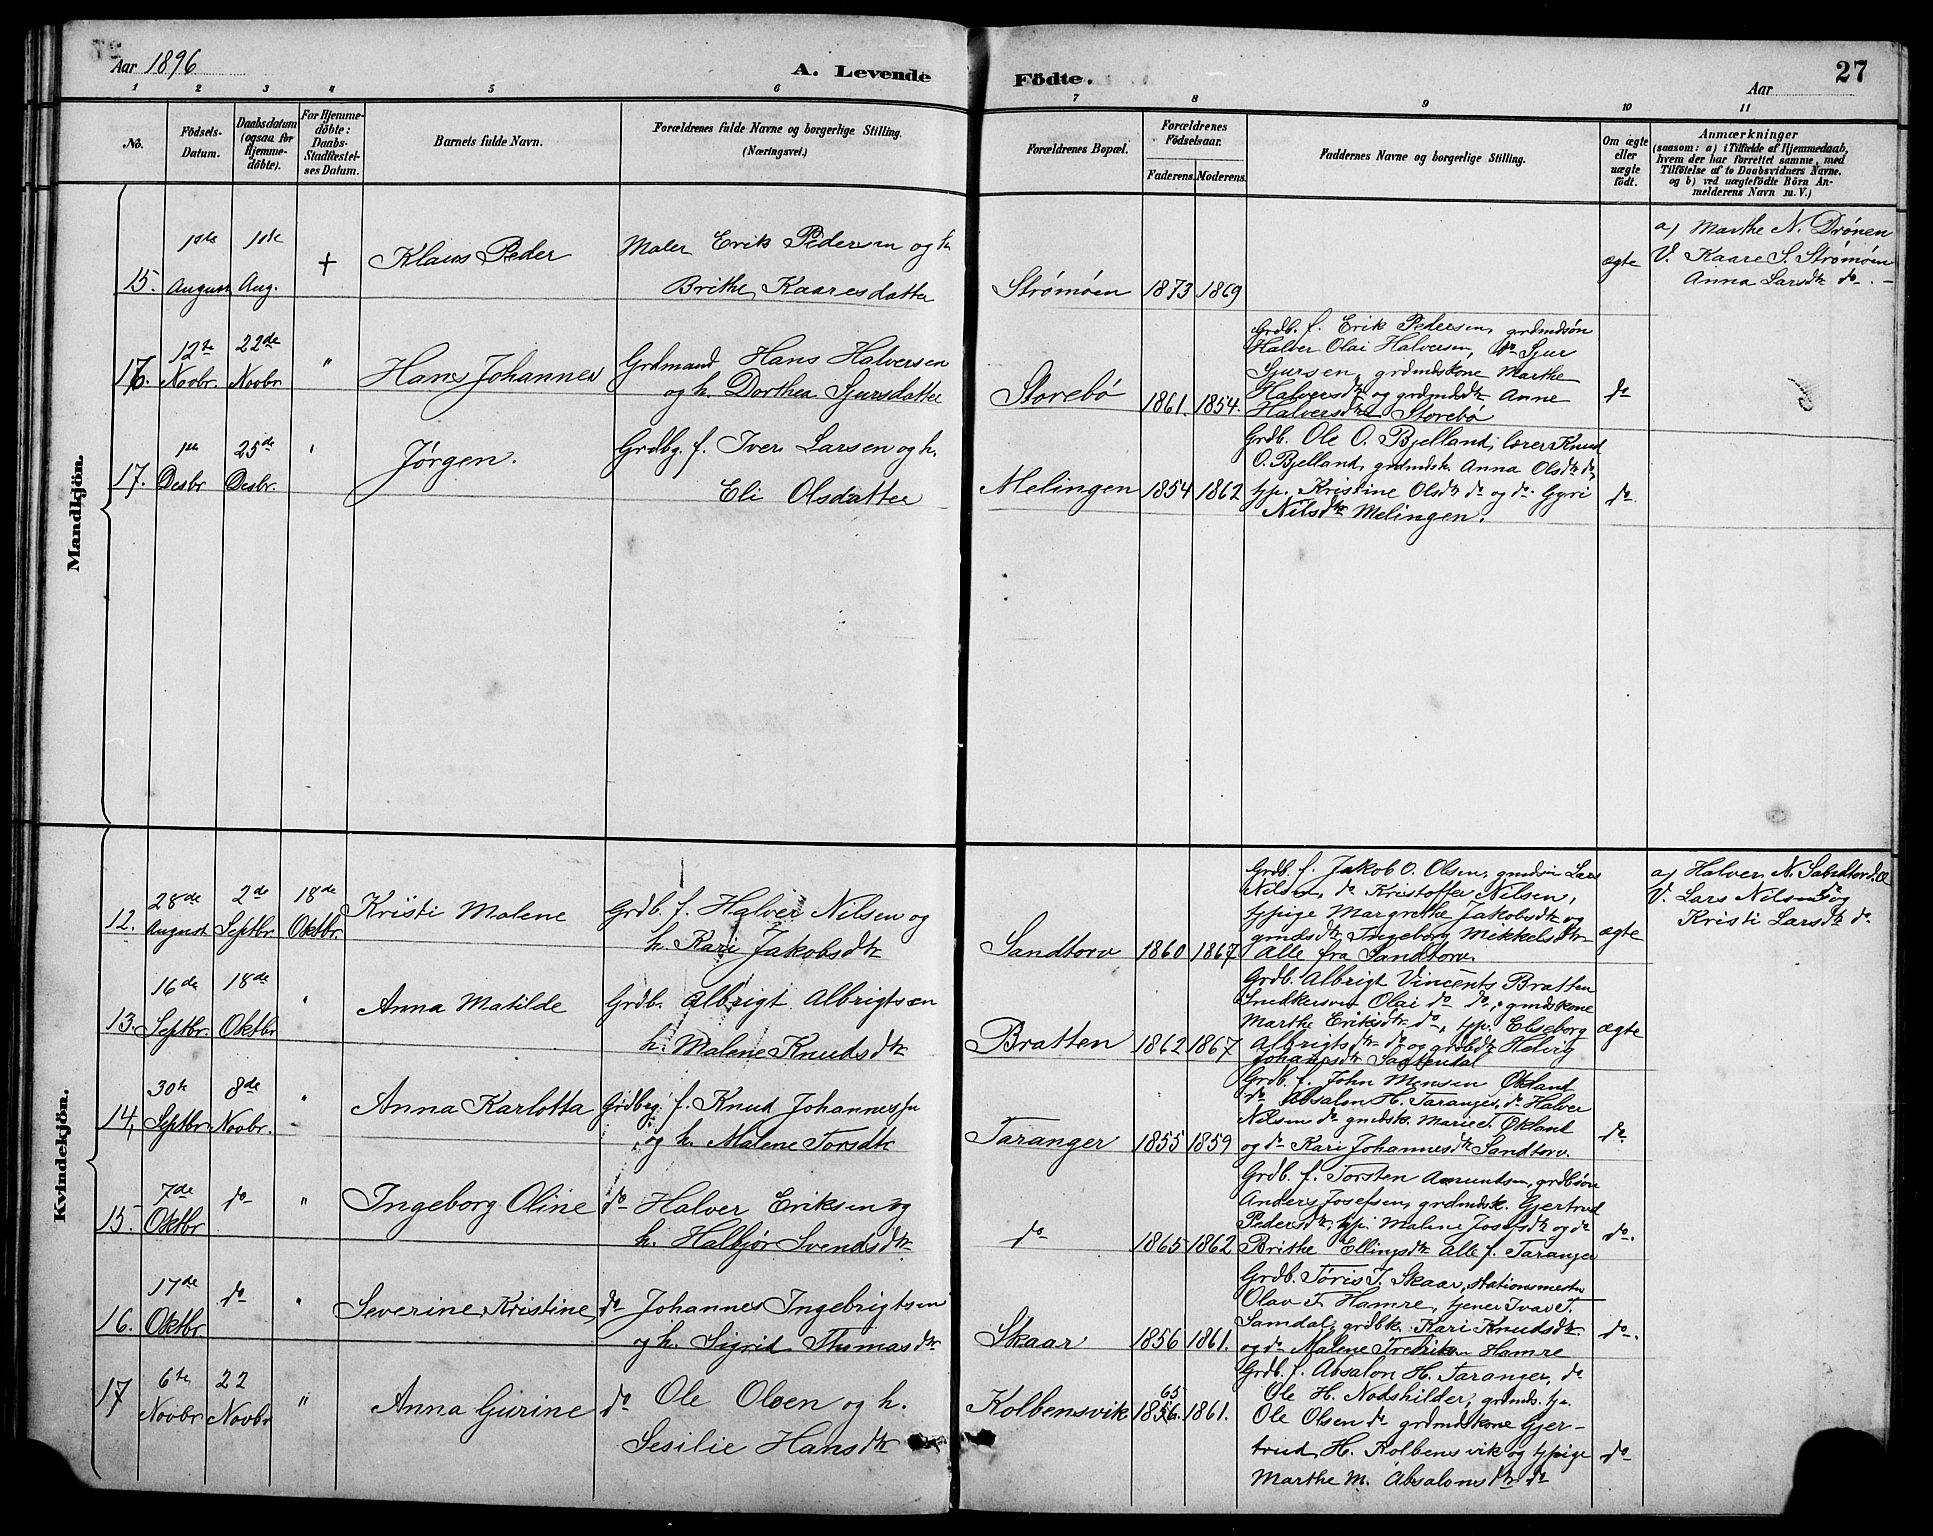 Aar 1896
A. Levende
Födte.
Aar
27
1 2 3 4 5 6 7 8 9 10 11
No.
Födsels-
Datum.
Daabsdatum
(ogsaa for
Hjemme-
döbte).
For Hjemme-
döbte:
Daabs-
Stadfæstel-
ses Datum.
Barnets fulde Navn.
Forældrenes fulde Navne og borgerlige Stilling.
(Næringsvei.)
Forældrenes Bopæl.
Forældrenes
Födselsaar.
Faderens. Moderens.
Faddernes Navne og borgerlige Stilling.
Om ægte
eller
uægte
födt.
Anmærkninger
(saasom: a) i Tilfælde af Hjemmedaab,
hvem der har forrettet samme, med
Tilföielse af to Daabsvidners Navne.
og b) ved uægtefödte Börn An-
melderens Navn m. V.)
Mandkjön.
15. 1ste August 1ste Aug. + Klaus Peder
Maler Erik Pedersen og h.
Brithe Kaaresdatter
Strømøen 1873 1869 ægte
a) Marthe N. Drönen
V. Kaare S. Strømøen
Anna Larsdtr do. -
16. 12te Novbr. 22de Novbr. " Hans Johannes
Grdmand Hans Halversen
og h. Dorthea Sjursdatter
Storebø 1861. 1854.
Grdb. f. Erik Pedersen, grdmdsøn
Halver Olai Halversen, do Sjur
Sjursen, grdmdskone Marthe
Halversdtr og grdmdsdtr Anne
Halversdtr Storebø
do
17. 1ste Desbr. 25de Desbr. " Jørgen.
Grdbg. f. Iver Larsen og h.
Eli Olsdatter
Melingen 1854 1862
Grdb. Ole O. Bjelland, lærer Knud
O. Bjelland, grdmdsk. Anna Olsdtr do,
tjp. Kristine Olsdtr do og do Gyri
Nilsdtr Melingen.
do
Kvindekjön.
12. 28de August 2de Septbr. 18de Oktbr. Kristi Malene
Grdb. f. Halver Nilsen og
h. Kari Jakobsdtr
Sandtorv 1860 1867
Grdb. f. Jakob O. Olsen, Lars
Nilsen, do Kristoffer Nilsen,
tjpige Margrethe Jakobsdtr og
gmdsdtr Ingeborg Mikkelsdtr
Alle fra Sandtorv.
ægte
a) Halver N. Sandtorv
V. Lars Nilsen do og
Kristi Larsdtr do
13. 16de Septbr. 18de Oktbr. " Anna Matilde
Grdb. Albrigt Albrigtsen
h. Malene Knudsdtr
Bratten 1862 1867
Grdb. Albrigt Vincents Bratten
Snedkersven Olai do do, gmdskone
Marthe Eriksdtr do, tjp. Elseborg
Albrigtsdtr do og grdbdtr Helvig
Johannsdtr
ægte
14. 30te Septbr. 8de Novbr. " Anna Karlotta
Grdbrg. f. Knud Johannesen
og h. Malene Torsdtr
Taranger 1855 1859
Grdb. f. John Monsen Økland
do Absalon H. Taranger, do Halver
Nilsen do gmdsk. Marie T. Økland
og do Kari Johannesdtr Sandtorv.
do
15. 7de Oktbr. do " Ingeborg Oline
do Halver Eriksen og
h. Halbjør Svendsdtr
do 1865 1862
Grdb. f. Torsten Amundsen, grdbsøn
Anders Josefsen, grdmdsk. Gjertrud
Pedersdtr, tjp. Malene Josefsdtr og do
Brithe Ellingsdtr Alle f. Taranger
do.
16. 17de Oktbr. do " Severine Kristine
do Johannes Ingebrigtsen
og h. Sigrid Thomasdtr
Skaar 1856 1861.
Grdb. Tøris J. Skaar, stationsmester
Olav T. Hamre, tjener Ivar T.
Samdal, grdbk. Kari Knudsdtr
og do Malene Hamre
do.
17 6te Novbr. 22 Novbr. " Anna Gurine
do Ole Olsen og h.
Sesilie Hansdtr
Kolbensvik 65 1856. 1861.
Grdb. f. Absalon H. Taranger, do
Ole H. Nodshilder, grdmds.
Ole Olsen do grdmdskone Gjer-
trud H. Kolbensvik og tjpige
Marthe M. Absalonsdtr do
do